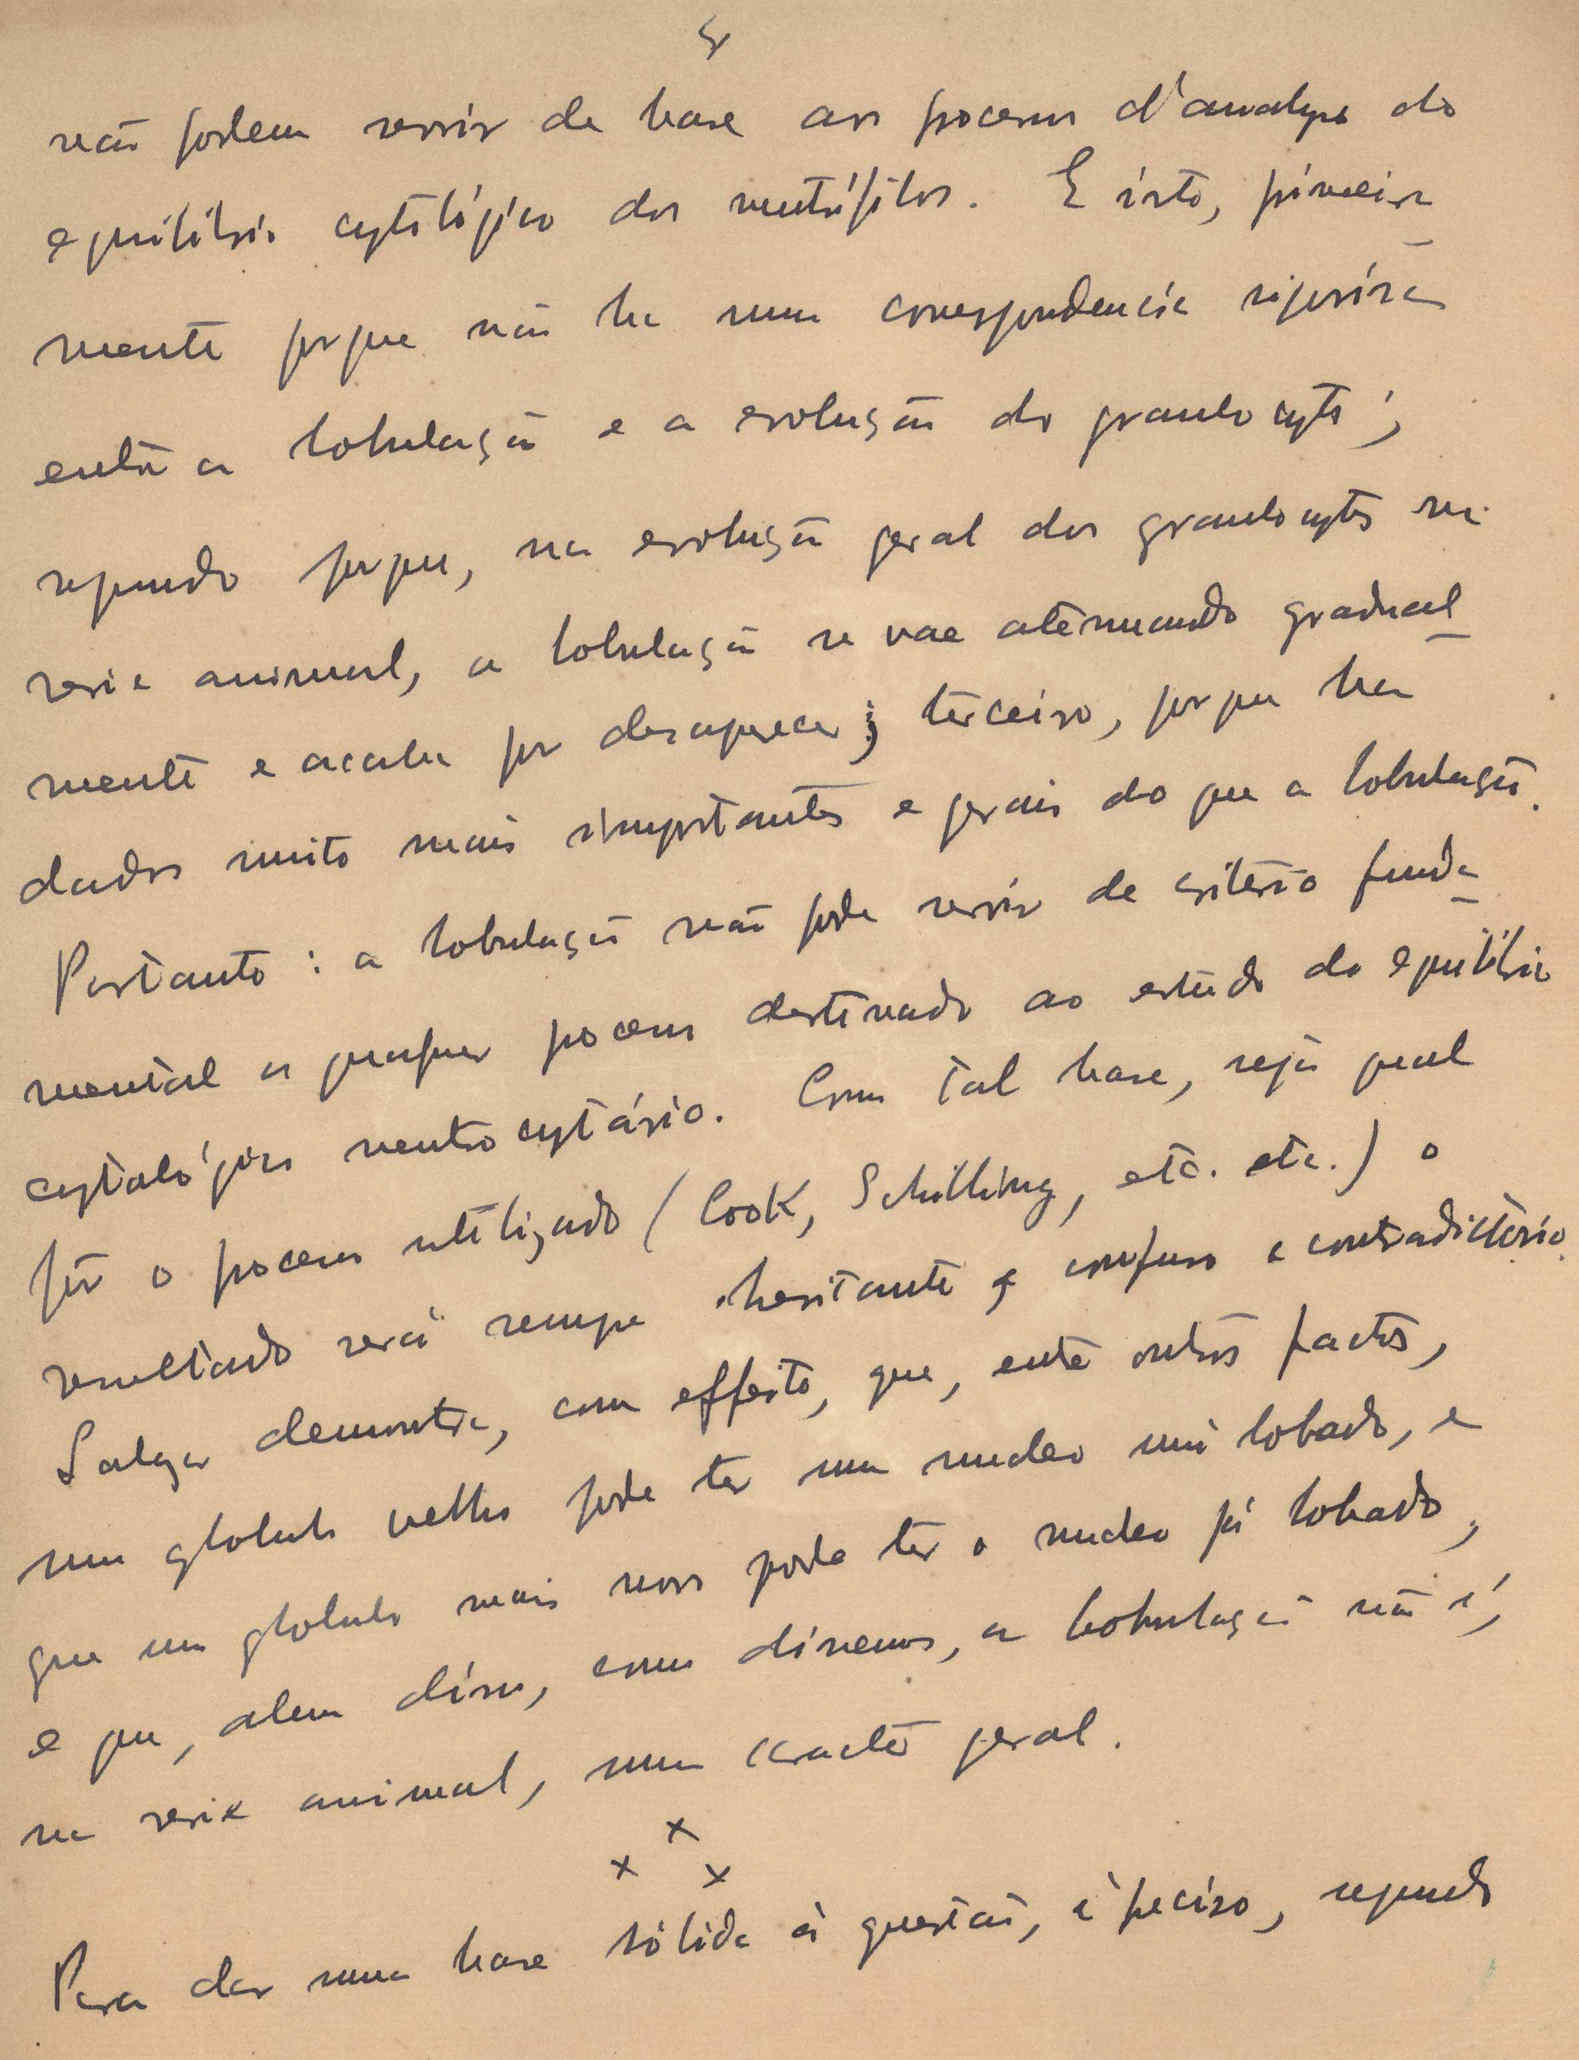 5
não podem servir de base aos processos d'analyse do
equilibrio cytológico dos neutrófilos. E isto, primeira-
mente porque não ha uma correspondencia rigorosa
entre a lobulação e a evolução do granulocyto;
segundo porque, na evolução geral dos granulocytos na
serie animal, a lobulação se vae atenuando gradual-
mente e acaba por desaparecer; terceiro, porque ha
dados muito mais importantes e gerais do que a lobulação.
Portanto: a lobulação não pode servir de critério funda-
mental a qualquer processo destinado ao estudo do equilibrio
cytológico neutrocytário. Com tal base, seja qual
fôr o processo utilizado (Cook, Schilling, etc. etc.) o
resultado será sempre hesitante, confuso e contradictório.
demonstra, com effeito, que, entre outros factos,
um globulo velho pode ter um nucleo uni lobado, e
que um globulo mais novo pode ter o nucleo já lobado,
e que, alem disso, como dissemos, a lobulação não é,
na serie animal, um caracter geral.
x x x
Para dar uma base sólida á questão, é preciso, segundo